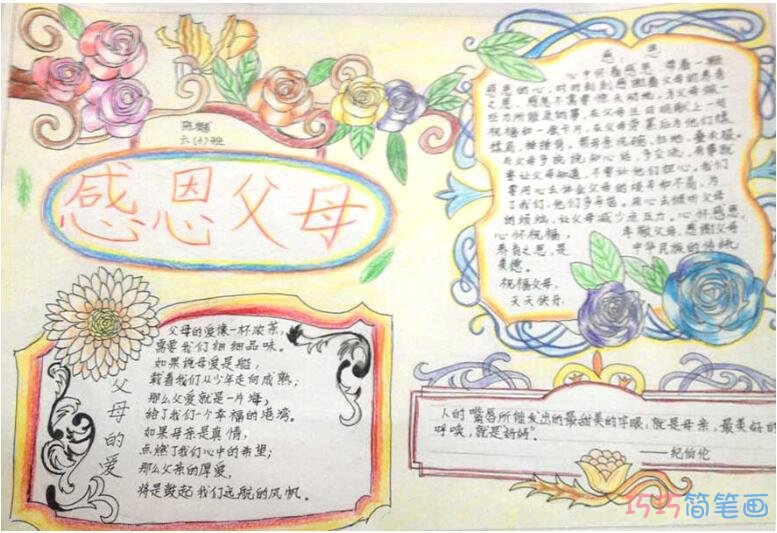 六(1)班
感恩父母
感恩
心中怀着感恩,带着一颗
感恩的心,时时刻刻感谢着父母的养育
之恩。感恩不需要惊天动地,为父母做一
些力所能及的事,在父母生日时献上一句
祝福和一张卡片,在父母劳累后为他们揉
揉肩,捶捶背。帮母亲洗碗,扫地,叠衣服。
与父母多说说知心话,多交流,有事就
要让父母知道,不要让他们担心。我们
要用心去体会父母的艰辛和不易,为
了我们,他们多辛苦。用心去倾听父母
的烦恼,让父母减少点压力。心怀感恩,
心怀祝福,孝敬父母,感谢父母
养育之恩,是中华民族的传统
美德。
祝福父母,
天天快乐。
父母的爱
父母的爱像一杯浓茶,
需要我们细细品味。
如果说母爱是船,
载着我们从少年走向成熟;
那么父爱就是一片海,
给了我们一个幸福的港湾。
如果母亲是真情,
点燃了我们心中的希望;
那么父亲的厚爱,
将是鼓起我们远航的风帆。
人的嘴唇所能发出的最甜美的字眼,就是母亲,最美好的
呼唤,就是“妈妈”。
——纪伯伦
1515简笔画